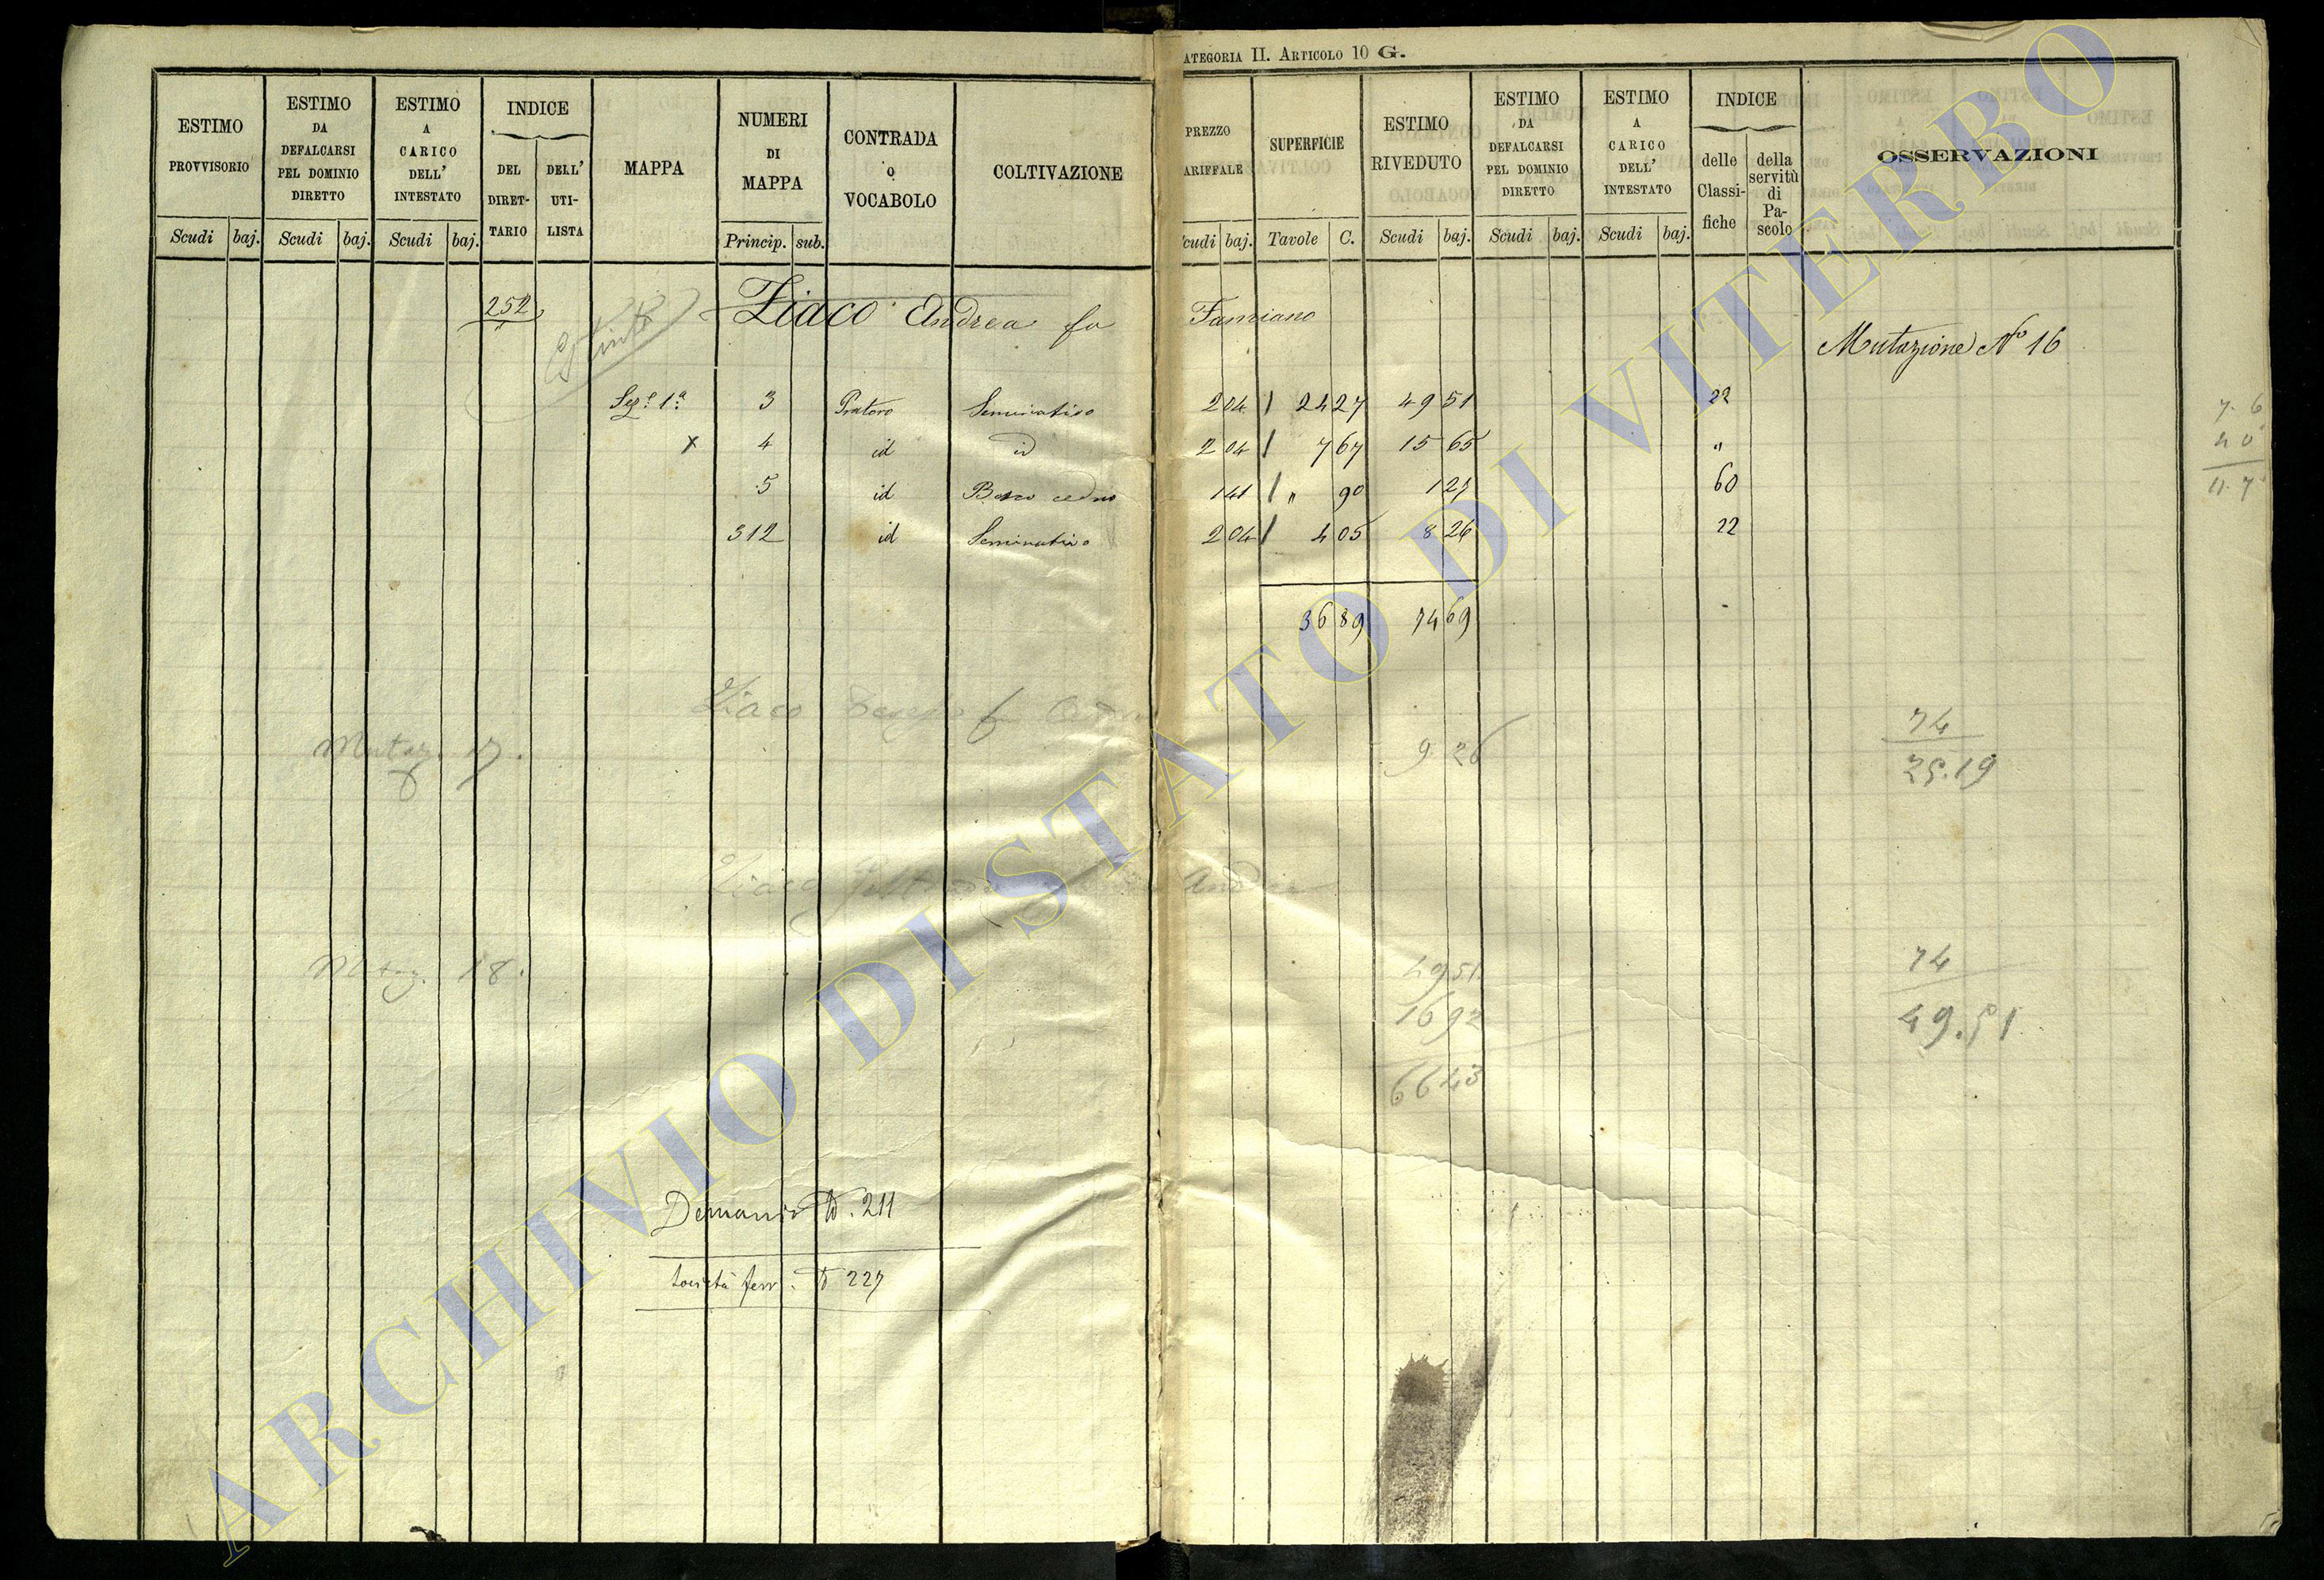 ATEGORIA II. ARTICOLO 10 G.
ESTIMO PROVVISORIO
ESTIMO DA DEFALCARSI PEL DOMINIO DIRETTO
ESTIMO A CARICO DELL' INTESTATO
INDICE
DEL DIRETTARIO
DELL' UTILISTA
MAPPA
NUMERI DI MAPPA
CONTRADA o VOCABOLO
COLTIVAZIONE
PREZZO ARIFFALE
SUPERFICIE
ESTIMO RIVEDUTO
ESTIMO DA DEFALCARSI PEL DOMINIO DIRETTO
ESTIMO A CARICO DELL' INTESTATO
INDICE
delle Classifiche
della servitù di Pascolo
OSSERVAZIONI
Scudi baj. Scudi baj. Scudi baj. Princip. sub. cudi baj. Tavole C. Scudi baj. Scudi baj. Scudi baj.
252 Ziaco Andrea fu Famiano
Estinta
Mutazione N° 16
Sez.e 1a 3 Pratoro Seminativo 2 04 24 27 49 51 22
x 4 id id 2 04 7 67 15 65 "
5 id Bosco ceduo 1 41 " 90 1 27 60
312 id Seminativo 2 04 4 05 8 26 22
36 89 74 69
7. 6
4 0
11. 7
Ziaco fu
Mutaz. 17. 9. 26
74
25.19
Ziaco Andrea
Mutaz. 18.
49 51
16 92
66 43
74
49.51
Demanio D. 211
Società ferr. D 227
ARCHIVIO DI STATO DI VITERBO